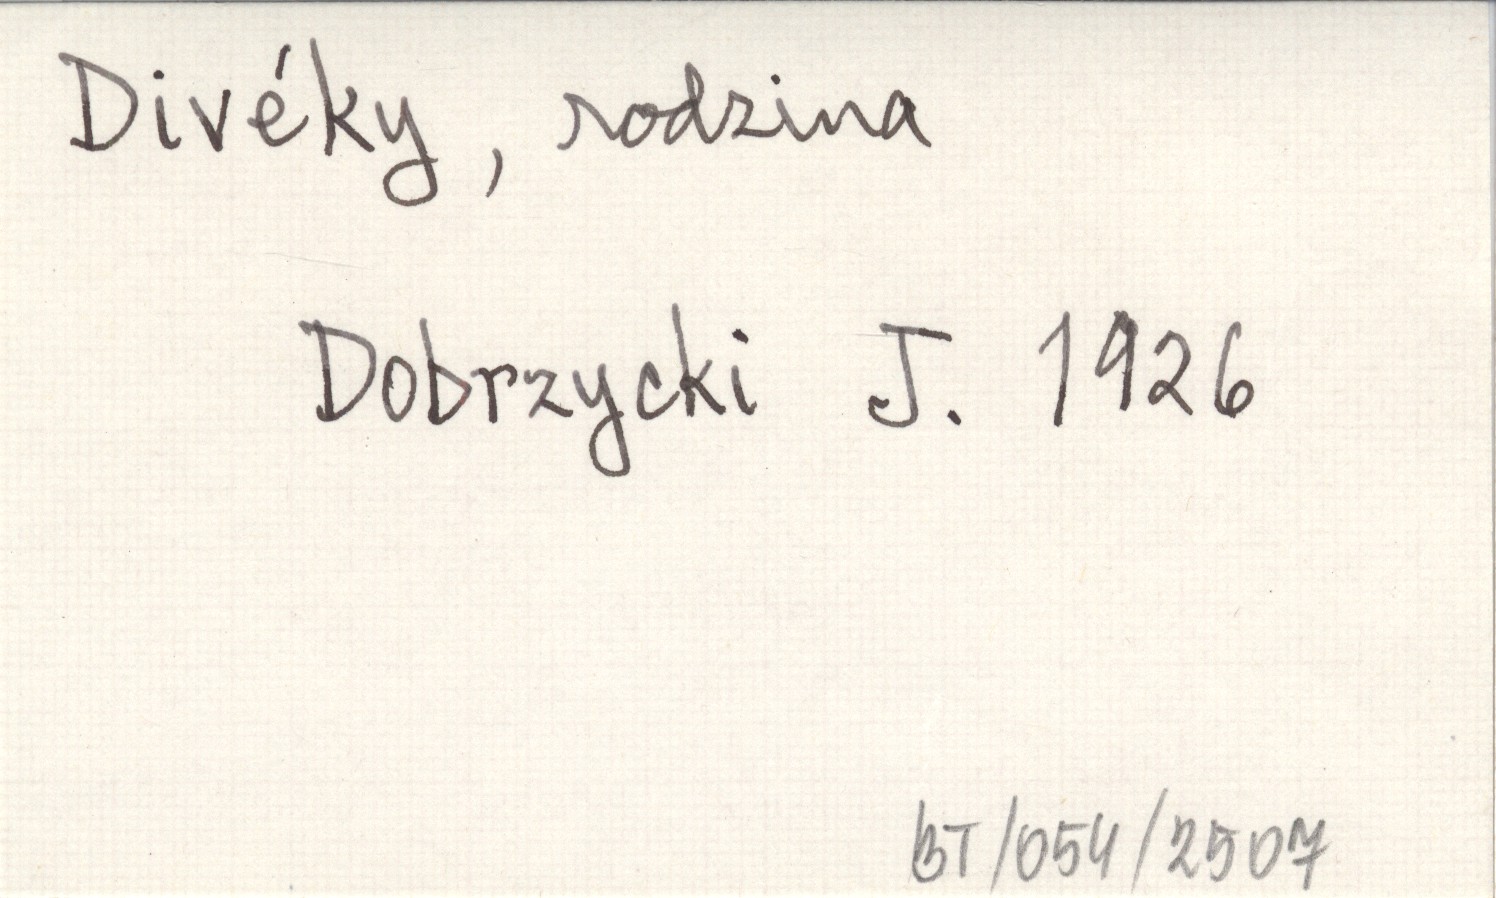 Divéky, rodzina
Dobrzycki J. 1926
BT/054/2507